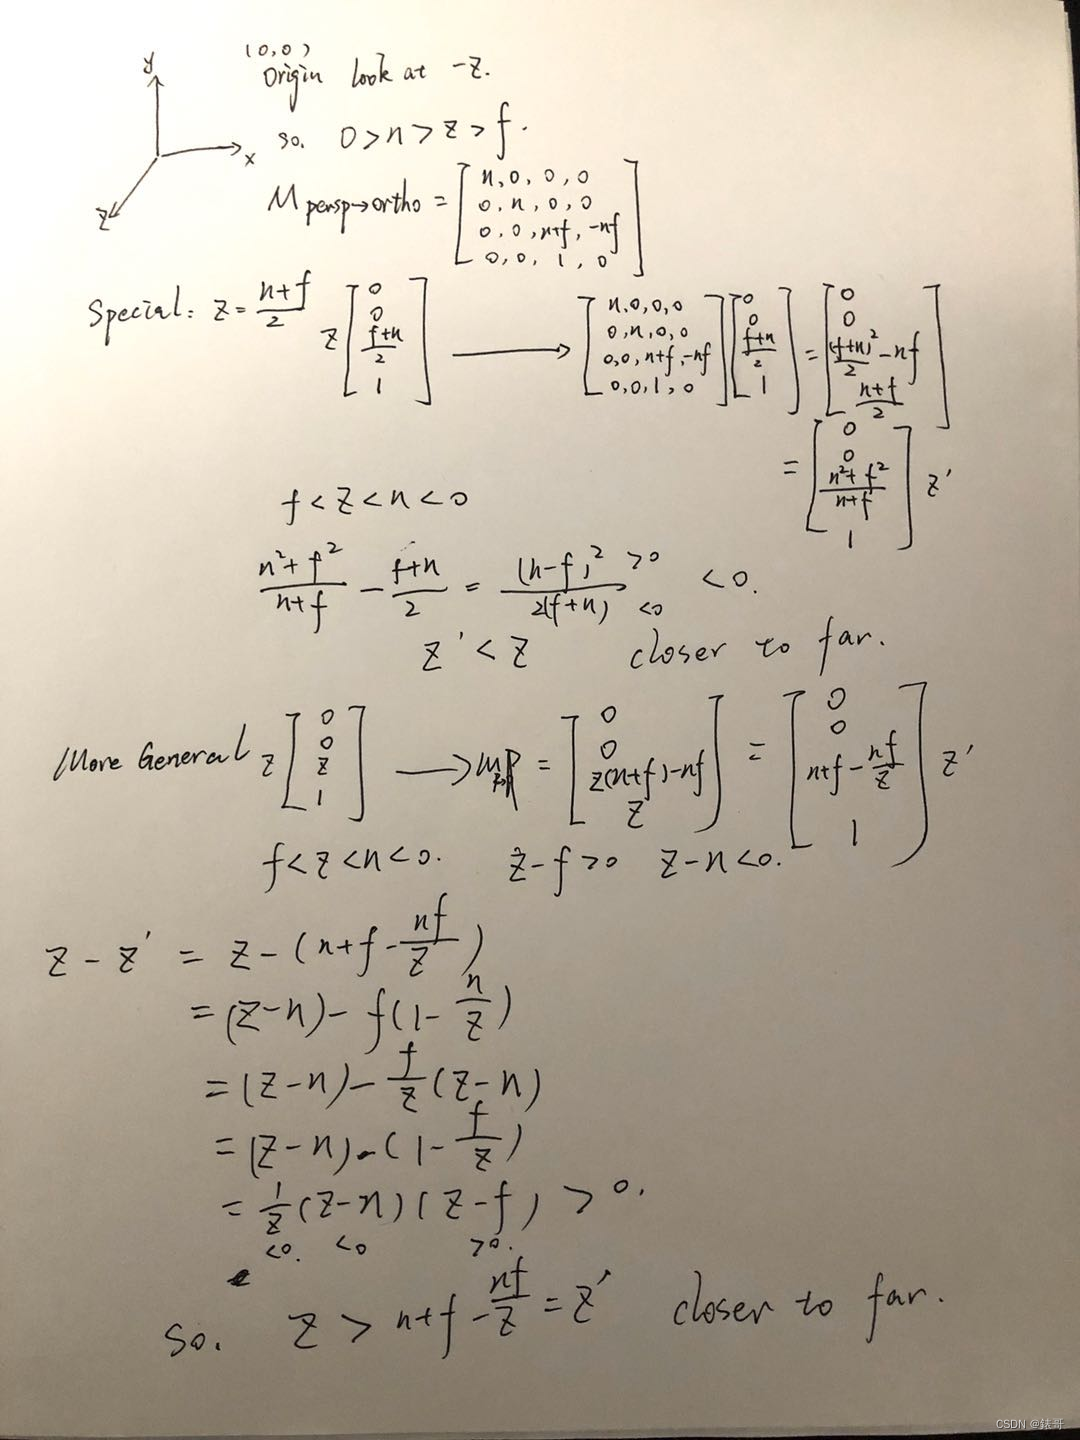 y
(0,0)
Origin look at -z.
x
so. 0 > n > z > f.
z
M persp→ortho = [n,0,0,0
0,n,0,0
0,0,n+f,-nf
0,0,1,0]
Special: z = (n+f)/2 z [0 0 (f+n)/2 1] → [n,0,0,0 0,n,0,0 0,0,n+f,-nf 0,0,1,0] [0 0 (f+n)/2 1] = [0 0 (f+n)²/2 - nf (n+f)/2]
= [0 0 (n²+f²)/(n+f) 1] z'
f < z < n < 0
(n²+f²)/(n+f) - (f+n)/2 = (n-f)²/2(f+n) >0 <0 < 0.
z' < z closer to far.
More General z [0 0 z 1] → = [0 0 z(n+f)-nf z] = [0 0 n+f-nf/z 1] z'
f < z < n < 0. z-f > 0 z-n < 0.
z - z' = z - (n+f - nf/z)
= (z-n) - f(1 - n/z)
= (z-n) - f/z (z-n)
= (z-n) · (1 - f/z)
= 1/z (z-n)(z-f) > 0.
<0. <0 >0.
so. z > n+f - nf/z = z' closer to far.
CSDN @錶哥